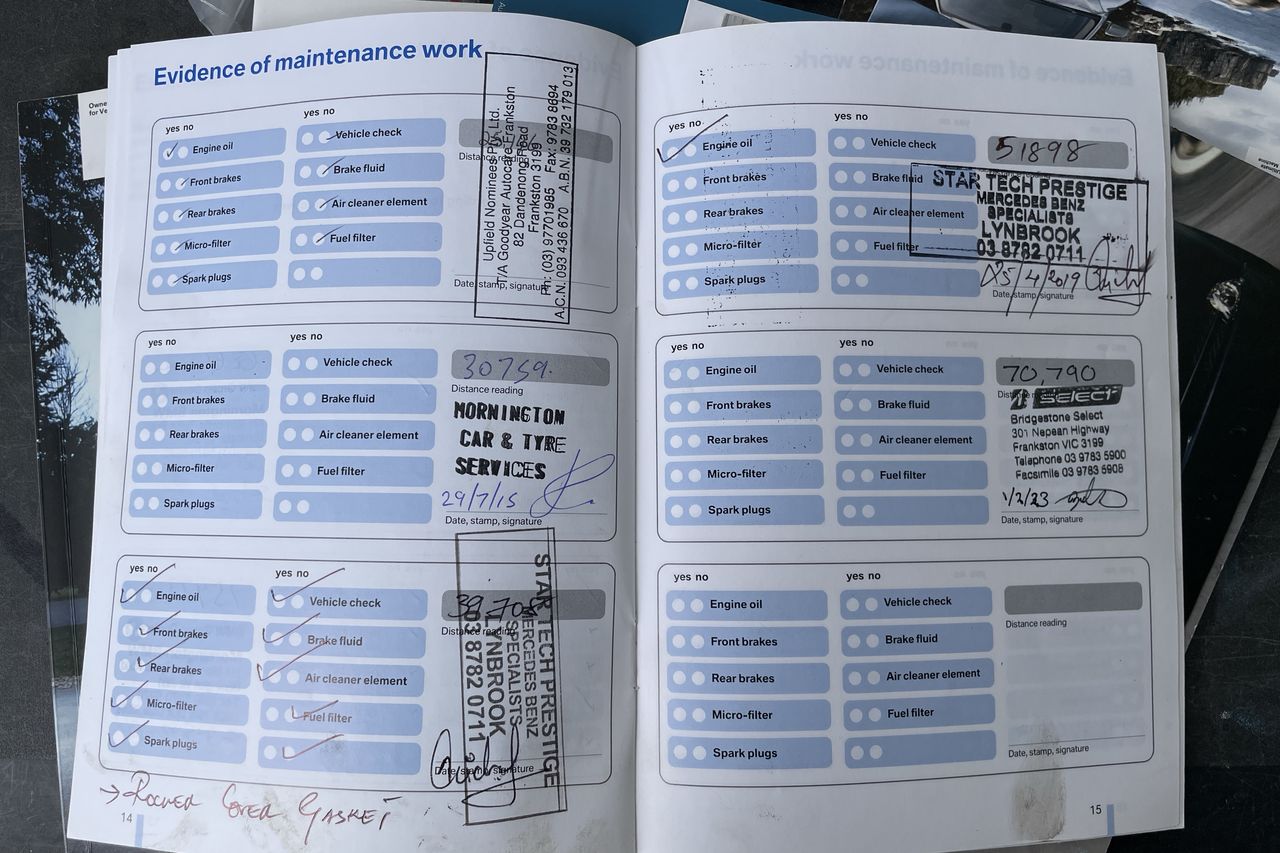 Evidence of maintenance work
yes no
yes no
Engine oil
Vehicle check
Front brakes
Brake fluid
Rear brakes
Air cleaner element
Micro-filter
Fuel filter
Spark plugs
Distance reading
Date, stamp, signature
Upfield Nominees Pty. Ltd.
T/A Goodyear Autocare Frankston
82 Dandenong Road
Frankston 3199
Ph: (03) 97701985 Fax: 9783 8694
A.C.N. 093 436 670 A.B.N. 39 732 179 013
yes no
yes no
Engine oil
Vehicle check
Front brakes
Brake fluid
Rear brakes
Air cleaner element
Micro-filter
Fuel filter
Spark plugs
30759.
Distance reading
MORNINGTON
CAR & TYRE
SERVICES
29/7/15
Date, stamp, signature
yes no
yes no
Engine oil
Vehicle check
Front brakes
Brake fluid
Rear brakes
Air cleaner element
Micro-filter
Fuel filter
Spark plugs
Distance reading
STAR TECH PRESTIGE
MERCEDES BENZ
SPECIALISTS
LYNBROOK
03 8782 0711
Date, stamp, signature
→ ROCKER COVER GASKET
14
yes no
yes no
Engine oil
Vehicle check
Front brakes
Brake fluid
Rear brakes
Air cleaner element
Micro-filter
Fuel filter
Spark plugs
51898
STAR TECH PRESTIGE
MERCEDES BENZ
SPECIALISTS
LYNBROOK
03 8782 0711
25/4/2019
Date, stamp, signature
yes no
yes no
Engine oil
Vehicle check
Front brakes
Brake fluid
Rear brakes
Air cleaner element
Micro-filter
Fuel filter
Spark plugs
70,790
SELECT
Bridgestone Select
301 Nepean Highway
Frankston VIC 3199
Telephone 03 9783 5900
Facsimile 03 9783 5908
1/2/23
Date, stamp, signature
yes no
yes no
Engine oil
Vehicle check
Front brakes
Brake fluid
Rear brakes
Air cleaner element
Micro-filter
Fuel filter
Spark plugs
Distance reading
Date, stamp, signature
15